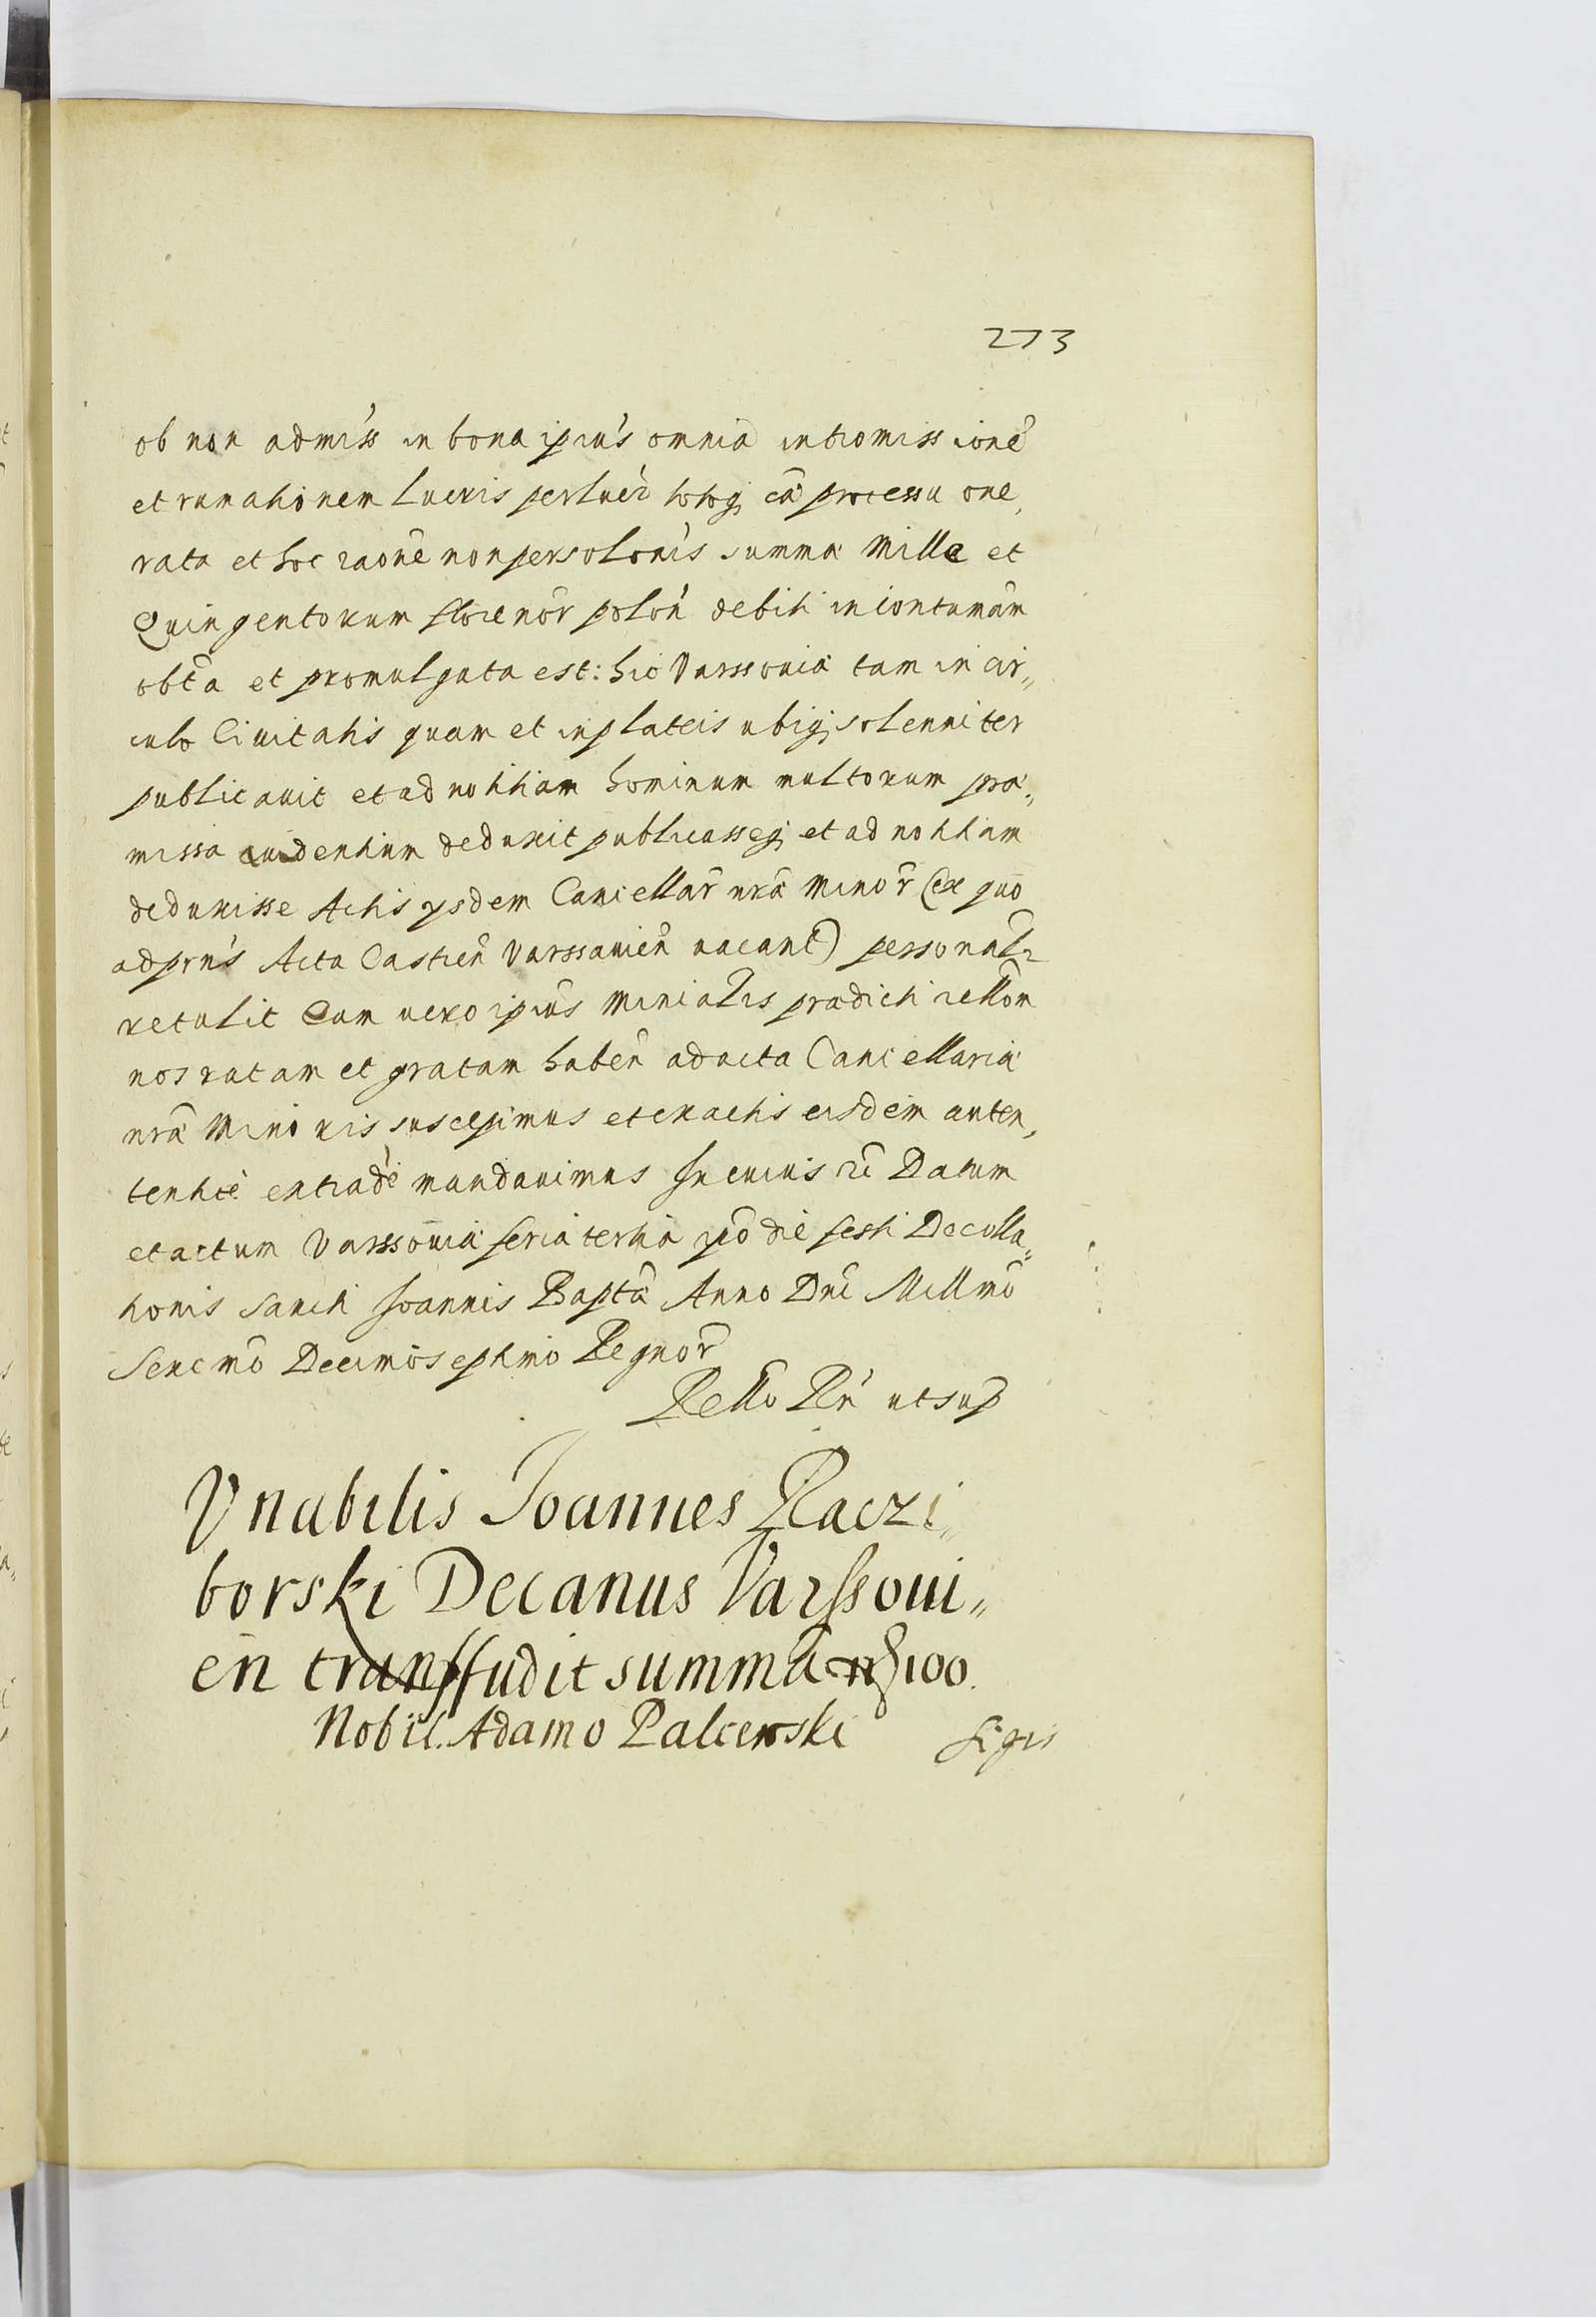 273
ob non admiss in bona ipius omnia intromissione
et rumationem Lucris perlucr totoq ca processu one,
rata et hoc raone non persolonis summa Mille et
Quingentorum florenor polon debiti in contumam
obta et promulgata est: hic Varssouia tam in cir„
culo Ciuitatis quam et in plateis ubiq solenniter
publicauit et ad notitiam hominum multorum prae„
missa euidentium deduxit publicasseq et ad notitiam
deduxisse Actis ysdem Cancellar nrae Minor (ex quo
ad prns Acta Castren Varssauien uacant) personalr
retulit Cum uero ipius Minialis praedicti rellom
nos ratam et gratam haben ad acta Cancellariae
nrae Minoris suscepimus et ex actis eisdem auten,
tentice extrade mandauimus In cuius rei Datum
et actum Varssouiae feria tertia ipo die festi Decolla„
tionis Sancti Joannis Baptae Anno Dni Millmo
Sexcmo Decimoseptimo Regnor
Rello Rn ut sup
Vnabilis Joannes Raczi„
borski Decanus Varssoui„
en transffudit summa 100.
Nobil. Adamo Palcerski Sigis